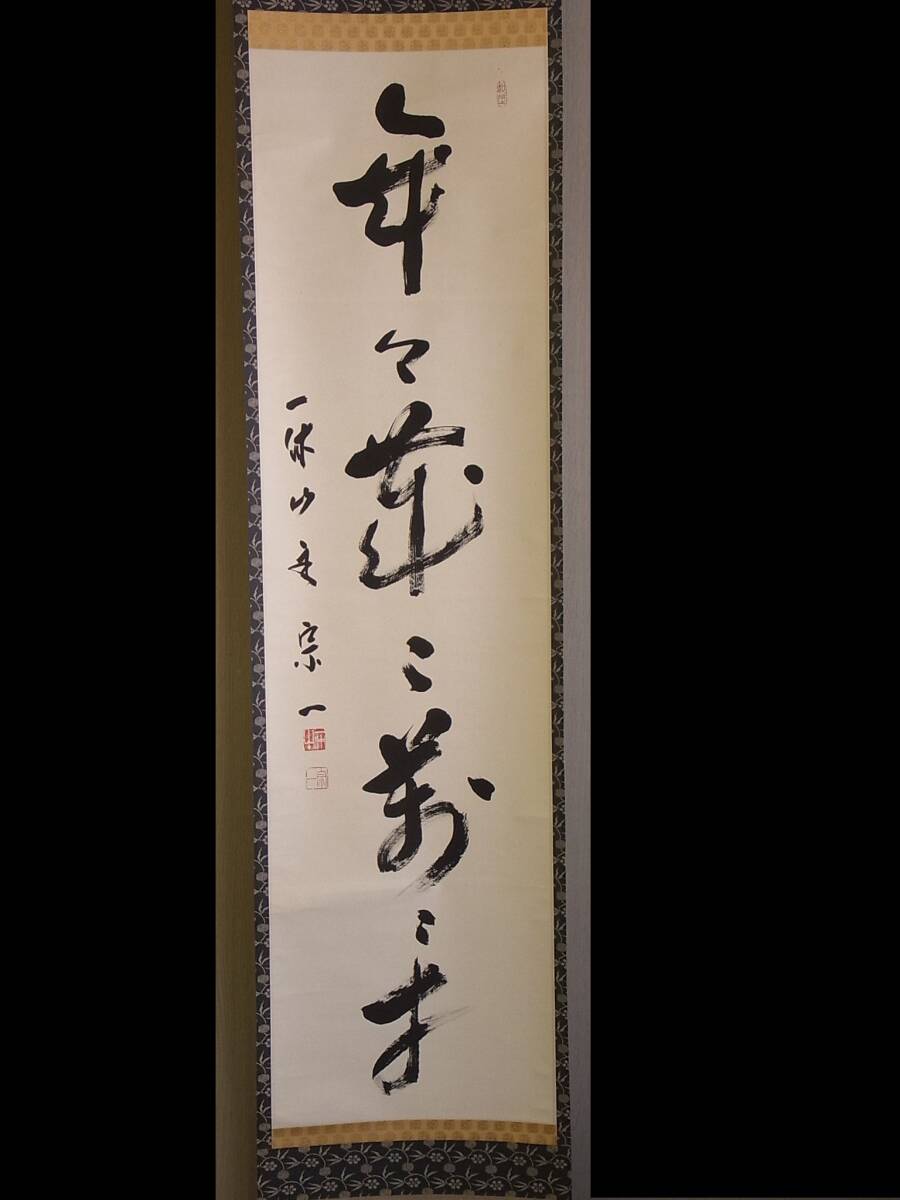 年々歳々萬々才
一休山主宗一